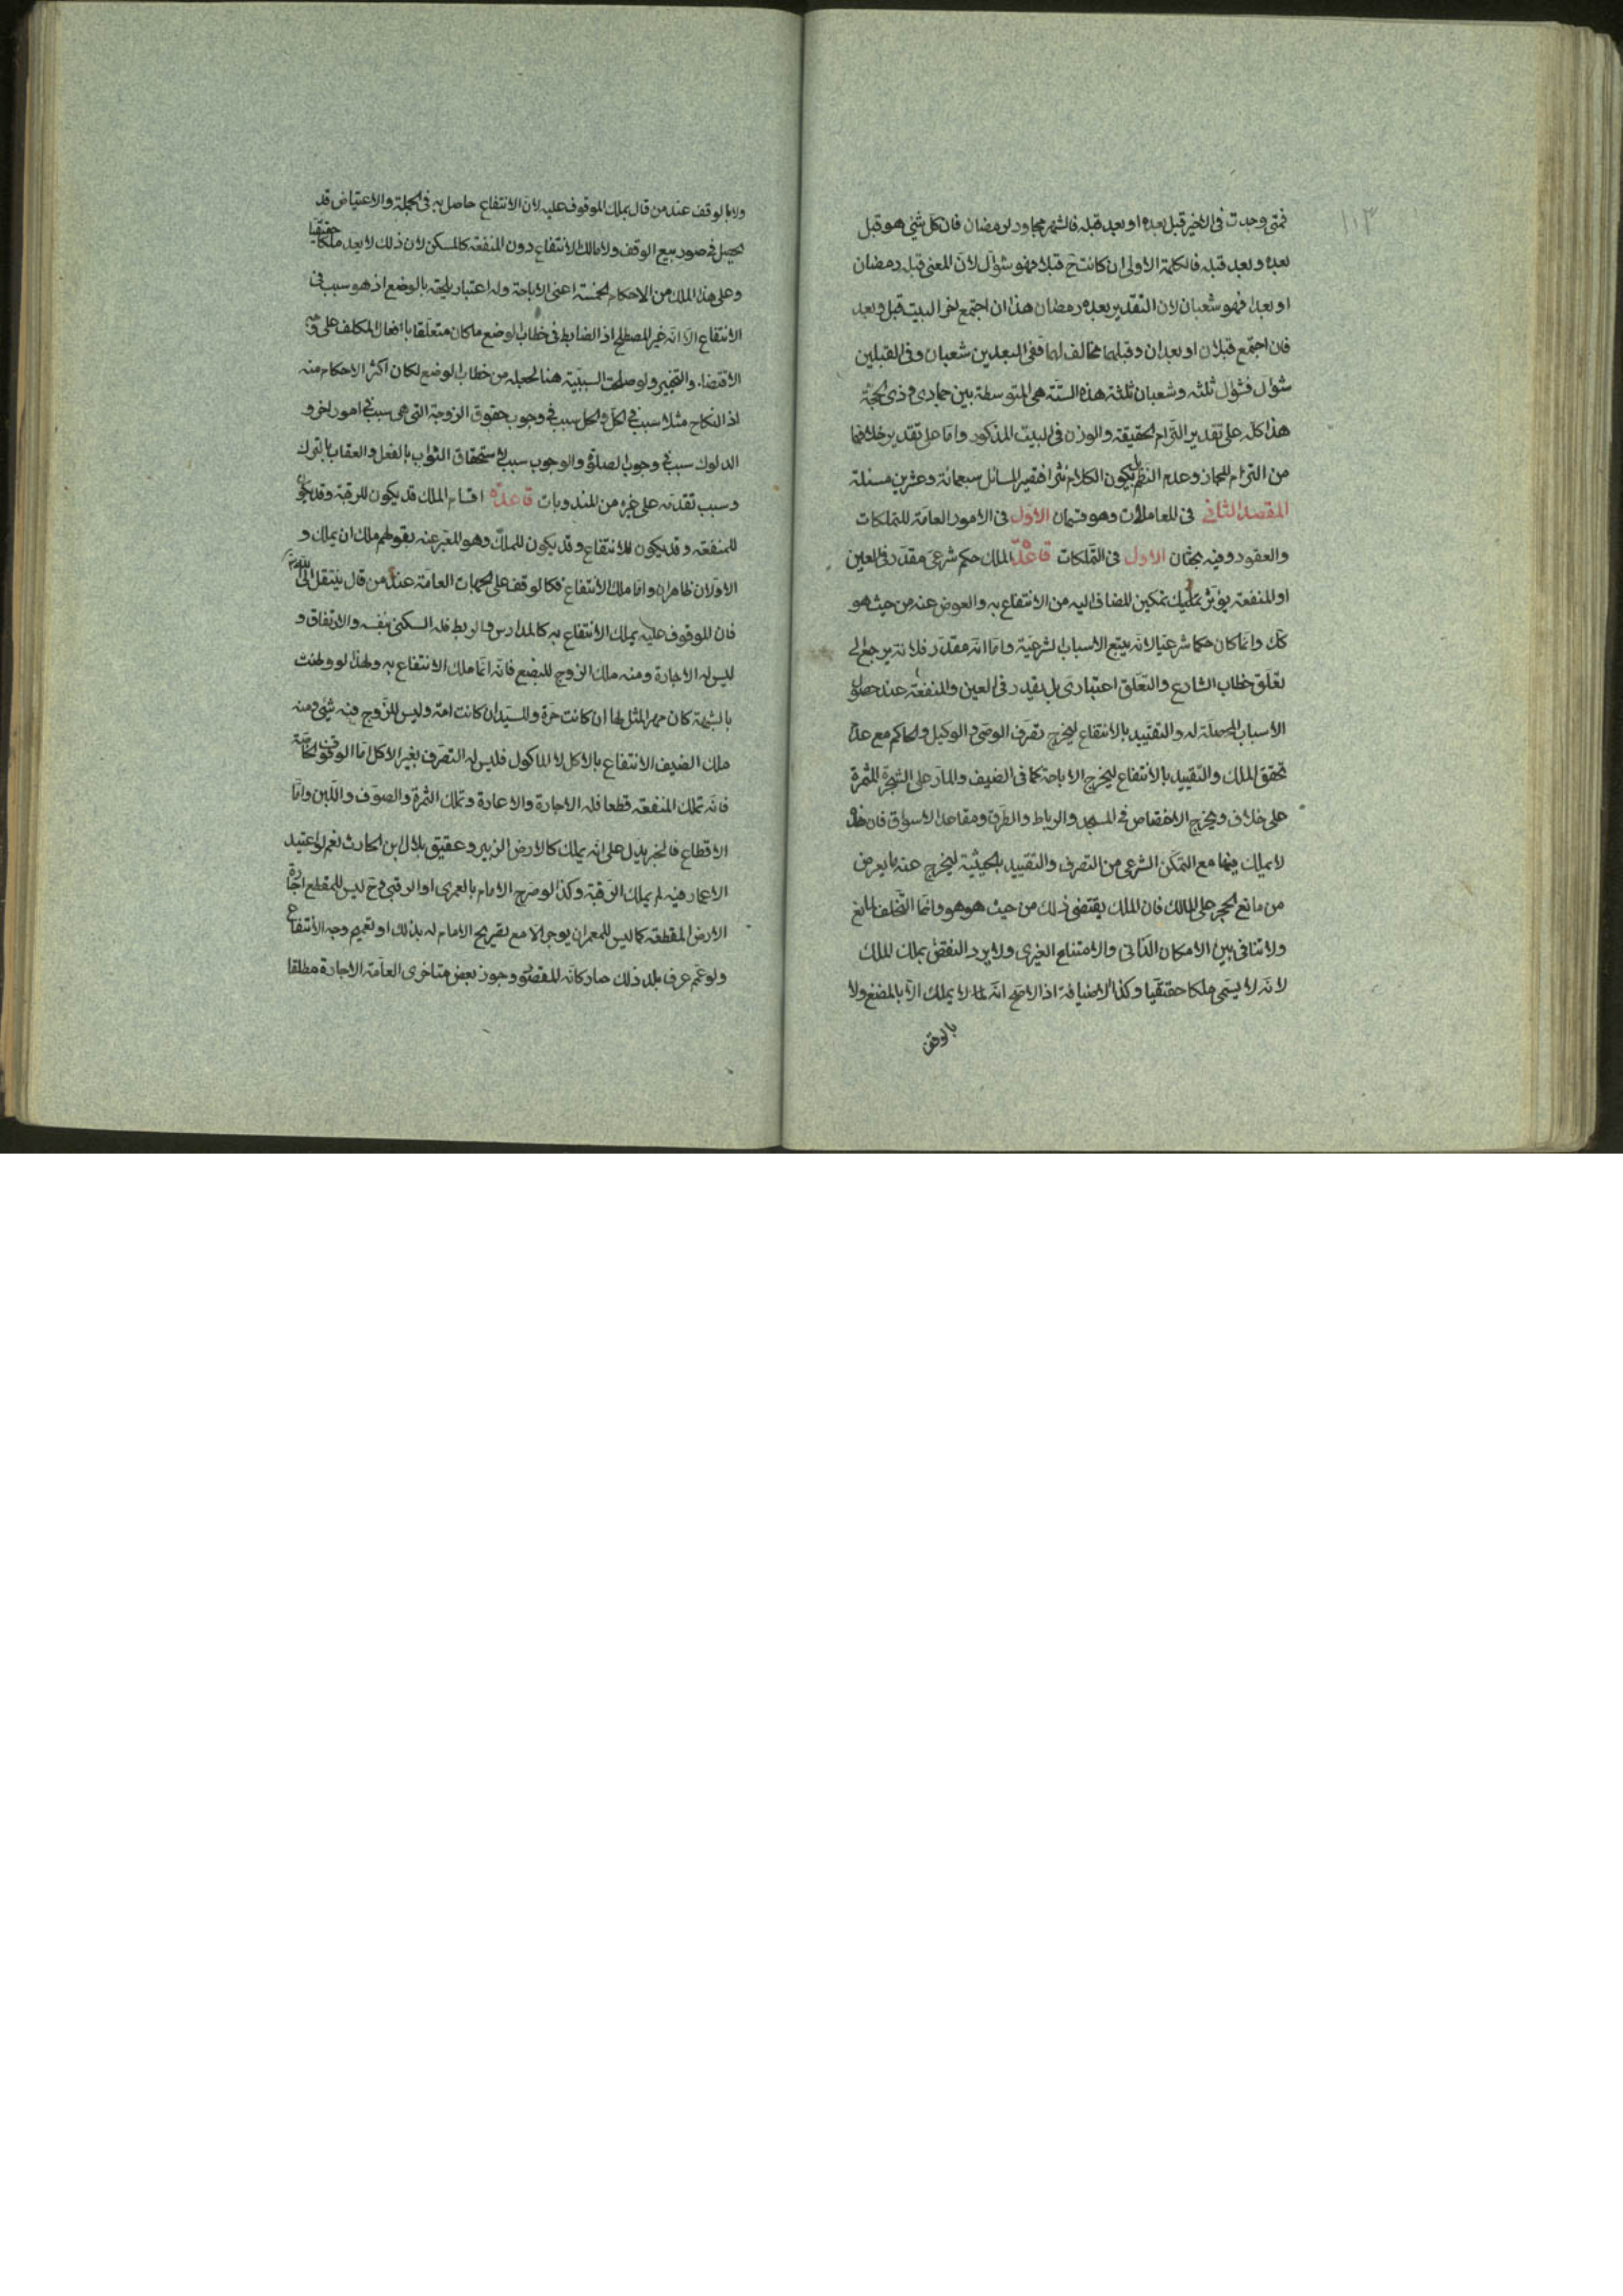 ١١٣
فمتى وجدت فى الاخير قبل بعده او بعد قبله فالشهر مجاور لرمضان فان كل شئ هو قبل
بعده وبعد قبله فالكلمة الاولى ان كانت ح قبلا فهو شوال لان المعنى قبله رمضان
او بعدا فهو شعبان لان التقدير بعده رمضان هذا ان اجتمع اخر البيت قبل وبعد
فان اجتمع قبلان او بعدان وقبلهما مخالف لهما ففى البعدين شعبان وفى القبلين
شوال فشوال ثلثه وشعبان ثلثة هذه الستة هى المتوسطة بين جمادى وذى الحجة
هذا كله على تقدير التزام الحقيقة والوزن فى البيت المذكور واما على تقدير خلافهما
من التزام المجاز وعدم النظم بل يكون الكلام نثرا فتصير المسائل سبعمائة وعشرين مسئلة
المقصد الثانى فى المعاملات وهو قسمان الاول فى الامور العامة للتملكات
والعقود وفيه بحثان الاول فى التملكات قاعدة الملك حكم شرعى مقدر فى العين
او المنفعة يؤثر تمكين المضاف اليه من الانتفاع به والعوض عنه من حيث هو
كك وانما كان حكما شرعيا لانه يتبع الاسباب الشرعية واما انه مقدر فلانه يرجع الى
تعلق خطاب الشارع والتعلق اعتبارى بل يقدر فى العين والمنفعة عند حصول
الاسباب المحصلة له والتقييد بالانتفاع ليخرج تصرف الوصى والوكيل والحاكم مع عدم
تحقق الملك والتقييد بالانتفاع ليخرج الاباحة كما فى الضيف والمار على الشجرة المثمرة
على خلاف ويخرج الاختصاص فى المسجد والرباط والطرق ومقاعد الاسواق فان هذه
لا تملك فيها مع التمكن الشرعى من التصرف والتقييد بالحيثية ليخرج عنه ما يعرض
من مانع الحجر على المالك فان الملك يقتضى ذلك من حيث هو هو وانما التخلف لمانع
ولا تنافى بين الامكان الذاتى والامتناع الغيرى ولا يرد النقض بملك الملك
لانه لا يسمى ملكا حقيقيا وكذا الاضيافة اذ الاصح انه لا يملك الا بالمضغ ولا
بالوقف
ولا بالوقف عند من قال بملك الموقوف عليه لان الانتفاع حاصل به فى الجملة والاعتياض قد
يحصل فى صور بيع الوقف ولا مالك الانتفاع دون المنفعة كالمسكن لان ذلك لا يعد ملكا حقيقيا
وعلى هذا الملك من الاحكام الخمسة اعنى الاباحة وله اعتبار يلحقه بالوضع اذ هو سبب فى
الانتفاع الا انه غير المصطلح اذ الضابط فى خطاب الوضع ما كان متعلقا بافعال المكلف على وجه
الاقتضاء والتخيير ولو صلحت السببية هنا لجعله من خطاب الوضع لكان اكثر الاحكام منه
اذ النكاح مثلا سبب فى الحل والحل سبب فى وجوب حقوق الزوجة التى هى سبب فى امور اخر و
الدلوك سبب فى وجوب الصلوة والوجوب سبب لاستحقاق الثواب بالفعل والعقاب بالترك
وسبب تقدمه على غيره من المندوبات قاعدة اقسام الملك قد يكون للرقبة وقد يكون
للمنفعة وقد يكون للانتفاع وقد يكون للملك وهو المعبر عنه بقولهم ملك ان يملك و
الاولان ظاهران واما ملك الانتفاع فكالوقف على الجهات العامة عند من قال ينتقل الى الله تعالى
فان الموقوف عليه يملك الانتفاع به كالمدارس والربط فله السكنى بنفسه والارتفاق و
ليس له الاجارة ومنه ملك الزوج للبضع فانه انما ملك الانتفاع به ولهذا لو وطئت
بالشبهة كان مهر المثل لها ان كانت حرة وللسيد ان كانت امة وليس للزوج فيه شئ ومنه
ملك الضيف الانتفاع بالاكل لا للماكول فليس له التصرف بغير الاكل اما الوقوف الخاصة
فانه تملك المنفعة قطعا فله الاجارة والاعارة وتملك الثمرة والصوف واللبن واما
الاقطاع فالخبر يدل على انه يملك كالارض الزبير وعقيق بلال ابن الحارث نعم لو اعتيد
الاعمار فيه لم يملك الرقبة وكذا لو صرح الامام بالعمرى او الرقبى وح ليس للمقطع اجارة
الارض المقطعة كما ليس للمعمر ان يوجر الا مع تصريح الامام له بذلك او تعميم وجه الانتفاع
ولو عم عرف بلد ذلك صار كانه المقصود وجوز بعض متاخرى العامة الاجارة مطلقا